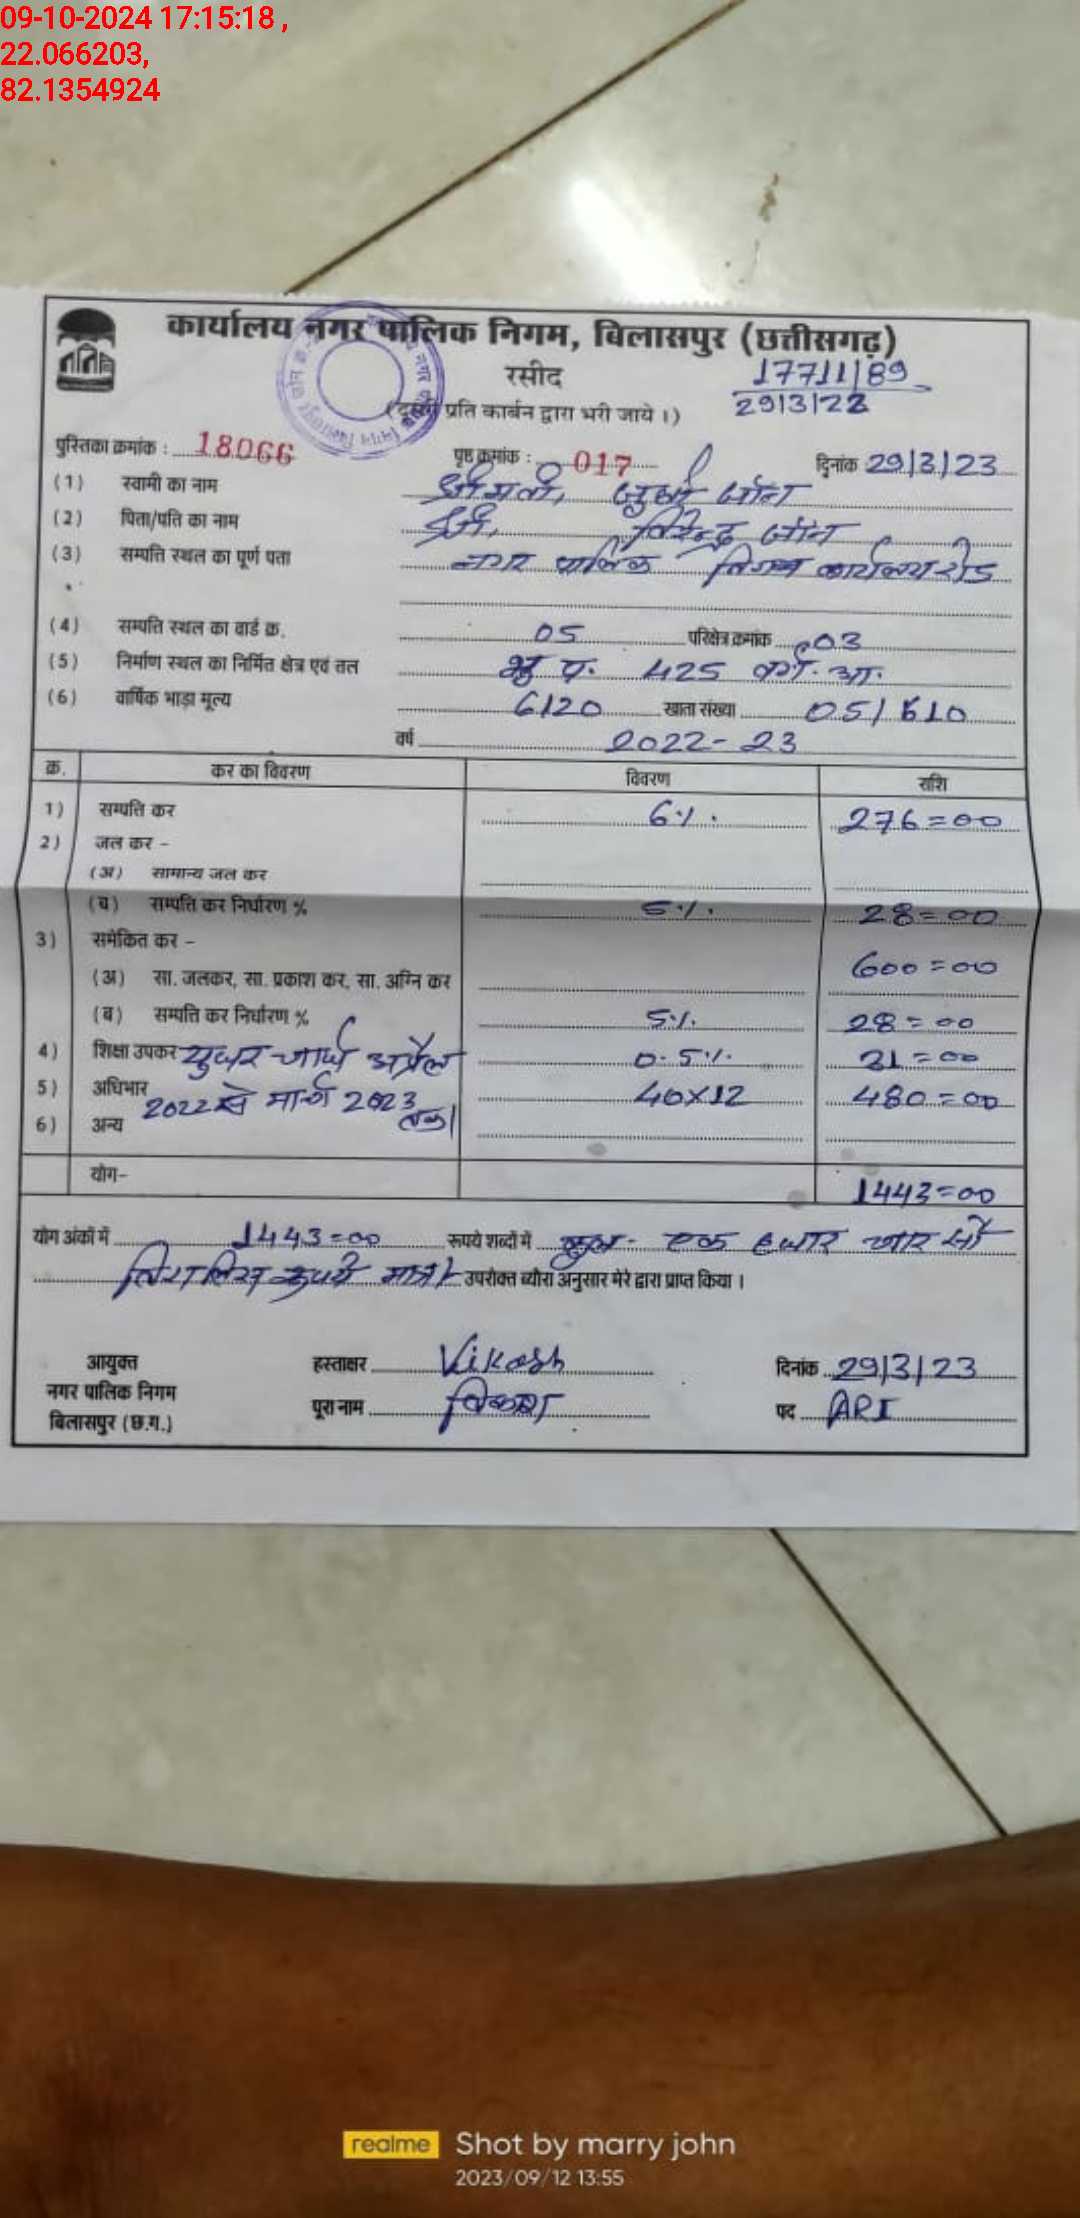 09-10-2024 17:15:18 ,
22.066203,
82.1354924
कार्यालय नगर पालिक निगम, बिलासपुर (छत्तीसगढ़)
रसीद
17711/89
29/3/23
(दूसरी प्रति कार्बन द्वारा भरी जाये ।)
पुस्तिका क्रमांक : 18066 पृष्ठ क्रमांक : 017 दिनांक 29/3/23
(1) स्वामी का नाम श्रीमती, जॉन
(2) पिता/पति का नाम श्री, विरेन्द्र जॉन
(3) सम्पति स्थल का पूर्ण पता नगर पालिक निगम कार्यालय रोड
(4) सम्पति स्थल का वार्ड क्र. 05 परिक्षेत्र क्रमांक 03
(5) निर्माण स्थल का निर्मित क्षेत्र एवं तल भु प. 425
(6) वार्षिक भाड़ा मूल्य 6120 खाता संख्या 051610
वर्ष 2022-23
क्र. कर का विवरण विवरण राशि
1) सम्पति कर 6%. 276=00
2) जल कर -
(अ) सामान्य जल कर
(ब) सम्पति कर निर्धारण % 5%. 28=00
3) समेकित कर -
(अ) सा. जलकर, सा. प्रकाश कर, सा. अग्नि कर 600=00
(ब) सम्पति कर निर्धारण % 5%. 28=00
4) शिक्षा उपकर 0.5%. 31=00
युजर चार्ज अप्रैल
5) अधिभार 40x12 480=00
2022 से मार्च 2023
तक।
6) अन्य
योग- 1443=00
योग अंकों में 1443=00 रूपये शब्दों में कुल - एक हजार चार सौ
तिरालिस रूपये मात्र। उपरोक्त ब्यौरा अनुसार मेरे द्वारा प्राप्त किया ।
आयुक्त हस्ताक्षर Vikash दिनांक 29/3/23
नगर पालिक निगम पूरा नाम विकाश पद ARI
बिलासपुर (छ.ग.)
realme Shot by marry john
2023/09/12 13:55